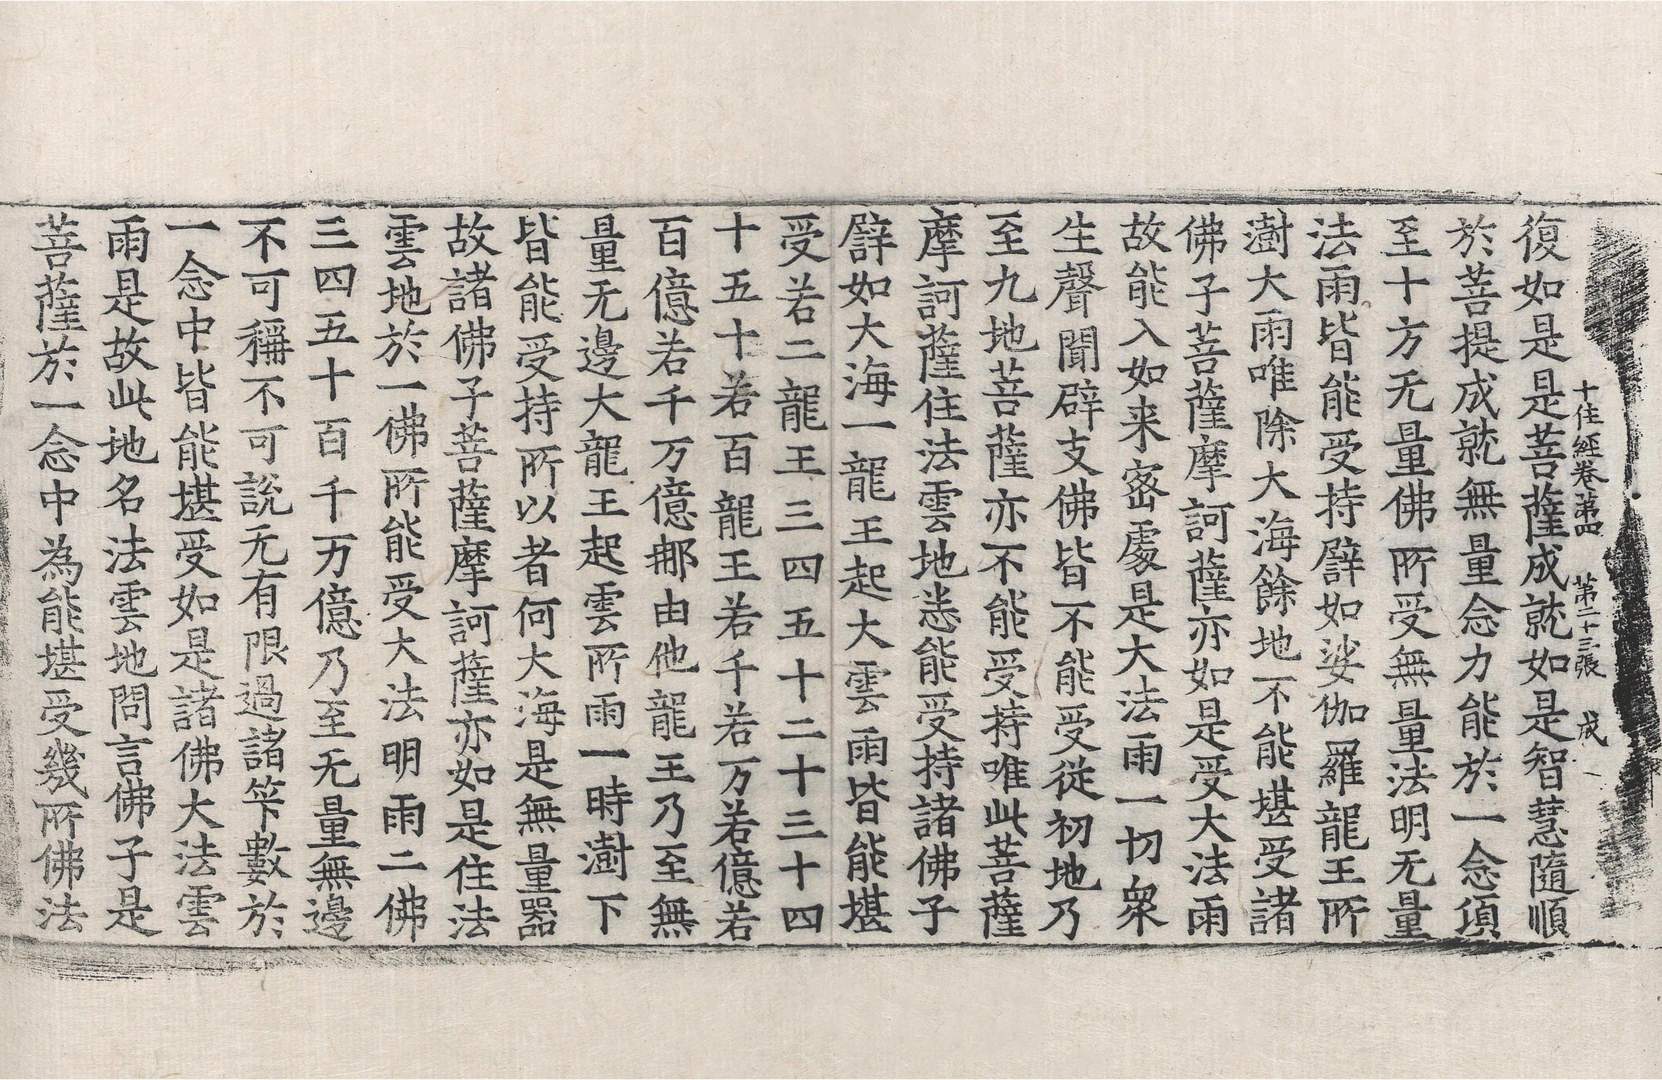 十住經卷第四　第二十三張　戍
復如是是菩薩成就如是智慧隨順
於菩提成就無量念力能於一念頃
至十方无量佛所受無量法明无量
法雨皆能受持譬如娑伽羅龍王所
澍大雨唯除大海餘地不能堪受諸
佛子菩薩摩訶薩亦如是受大法雨
故能入如来宻處是大法雨一切衆
生聲聞辟支佛皆不能受從初地乃
至九地菩薩亦不能受持唯此菩薩
摩訶薩住法雲地悉能受持諸佛子
譬如大海一龍王起大雲雨皆能堪
受若二龍王三四五十二十三十四
十五十若百龍王若千若万若億若
百億若千万億那由他龍王乃至無
量无邊大龍王起雲所雨一時澍下
皆能受持所以者何大海是無量器
故諸佛子菩薩摩訶薩亦如是住法
雲地於一佛所能受大法明雨二佛
三四五十百千万億乃至无量無邊
不可稱不可說无有限過諸笇數於
一念中皆能堪受如是諸佛大法雲
雨是故此地名法雲地問言佛子是
菩薩於一念中為能堪受幾所佛法